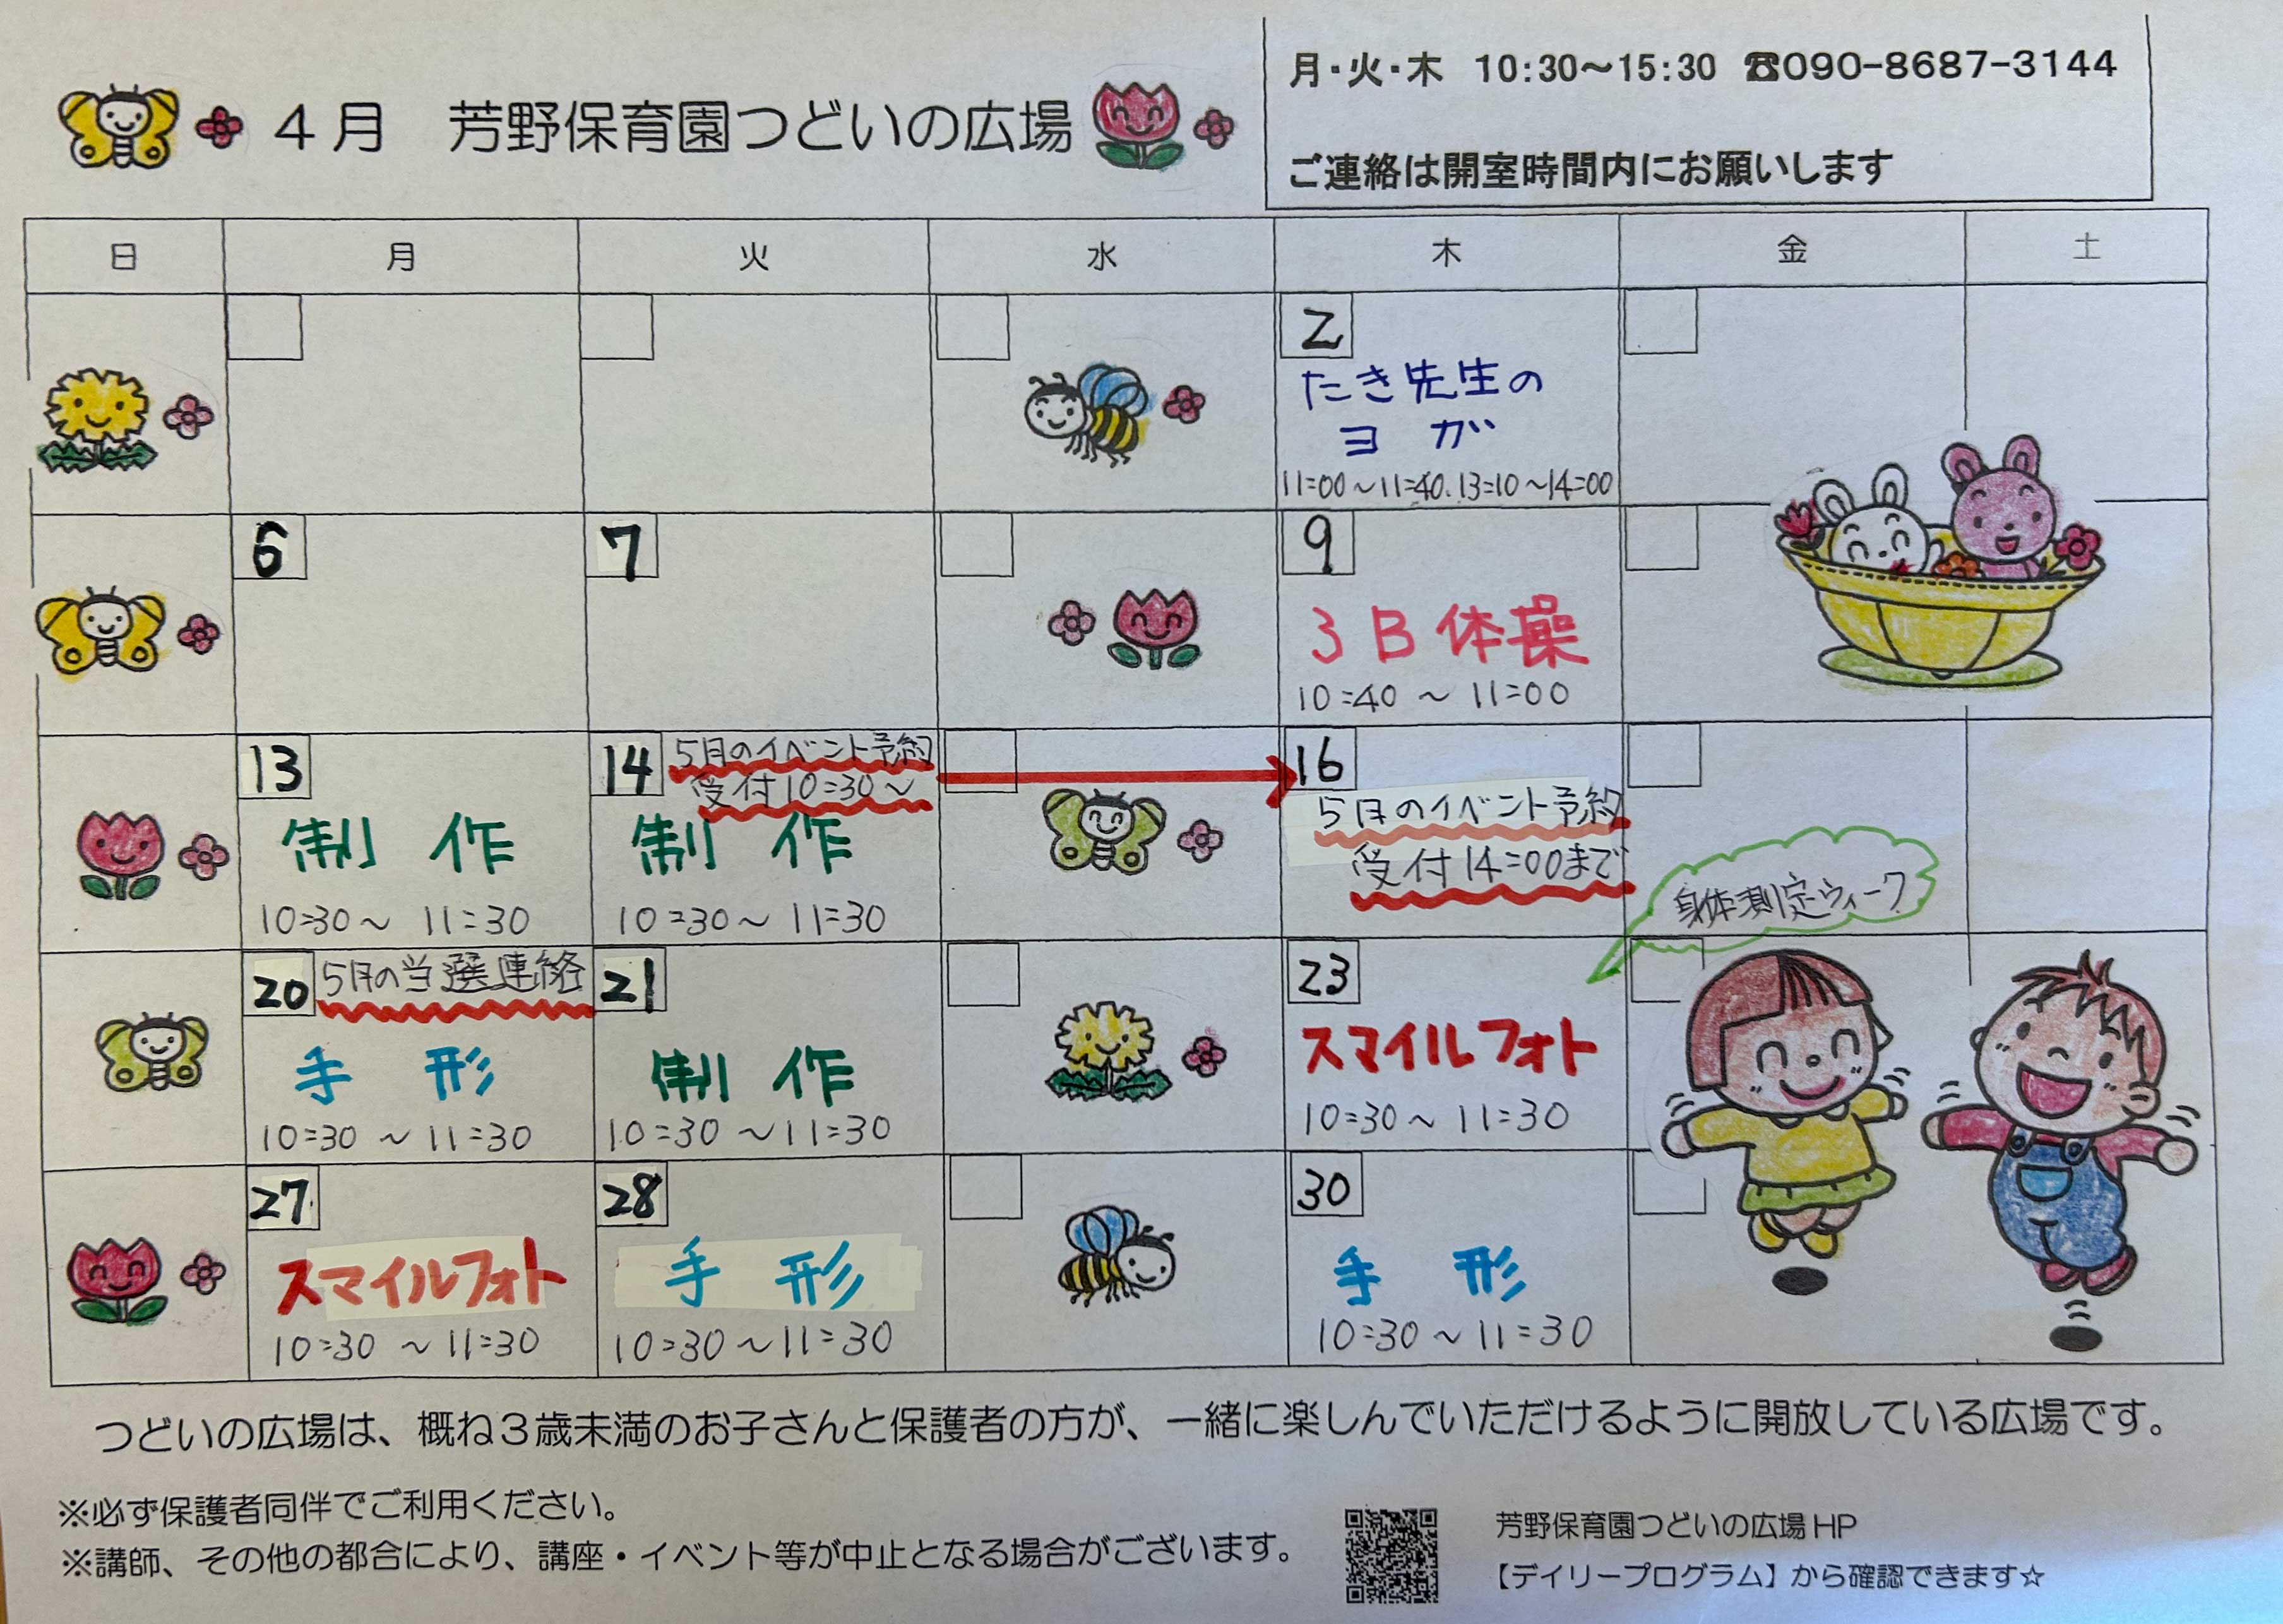 4月 芳野保育園つどいの広場
月・火・木 10:30～15:30 ☎090-8687-3144
ご連絡は開室時間内にお願いします
日 月 火 水 木 金 土
2
たき先生の
ヨガ
11:00～11:40. 13:10～14:00
6
7
9
3B体操
10:40～11:00
13
制作
10:30～11:30
14
5月のイベント予約
受付10:30～
制作
10:30～11:30
16
5月のイベント予約
受付14:00まで
身体測定ウィーク
20
5月の当選連絡
手形
10:30～11:30
21
制作
10:30～11:30
23
スマイルフォト
10:30～11:30
27
スマイルフォト
10:30～11:30
28
手形
10:30～11:30
30
手形
10:30～11:30
つどいの広場は、概ね3歳未満のお子さんと保護者の方が、一緒に楽しんでいただけるように開放している広場です。
※必ず保護者同伴でご利用ください。
※講師、その他の都合により、講座・イベント等が中止となる場合がございます。
芳野保育園つどいの広場HP
【デイリープログラム】から確認できます☆